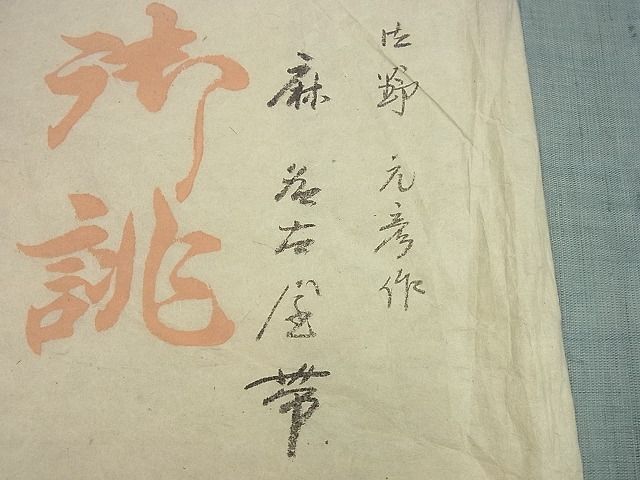 佐野 元彦作
麻名古屋帯
御誂